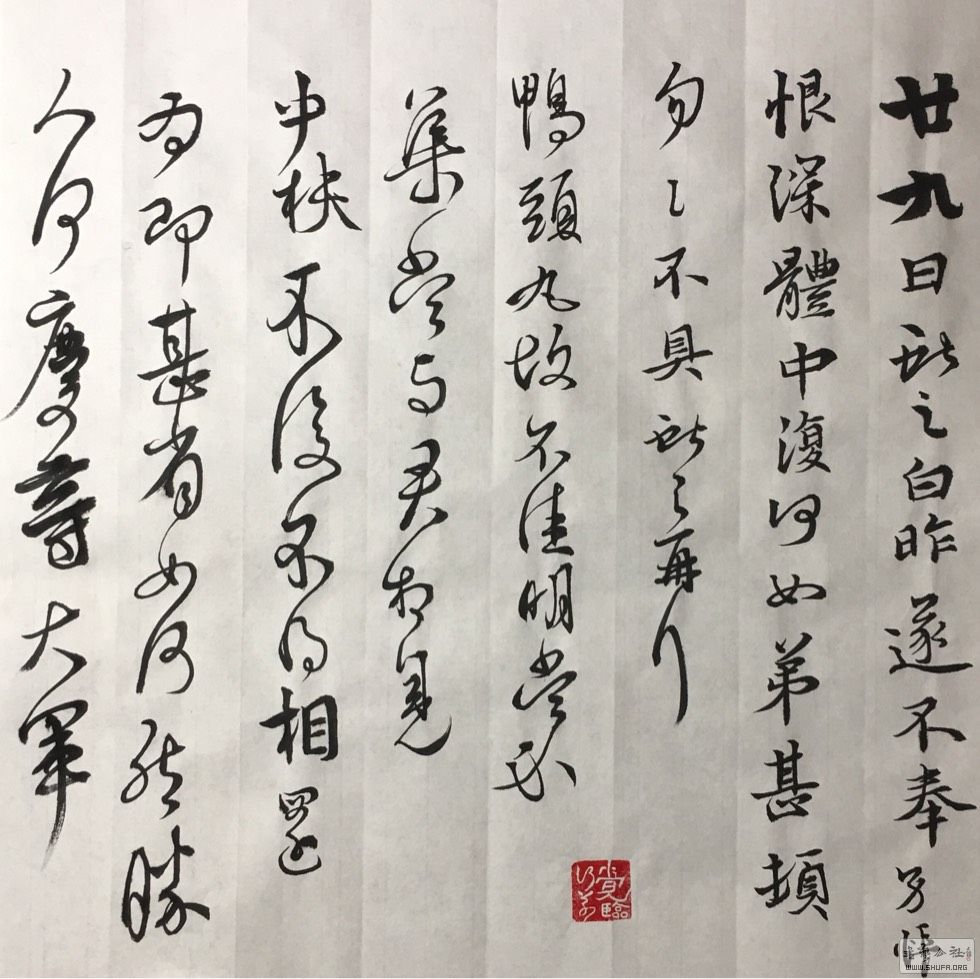 廿九日獻之白昨遂不奉別悵
恨深體中復何如弟甚頓
勿々不具獻之再拜
鴨頭丸故不佳明當必
集當與君相見
中秋不復不得相還
為即甚省如何然勝
人何慶等大軍
WWW.SHUFA.ORG